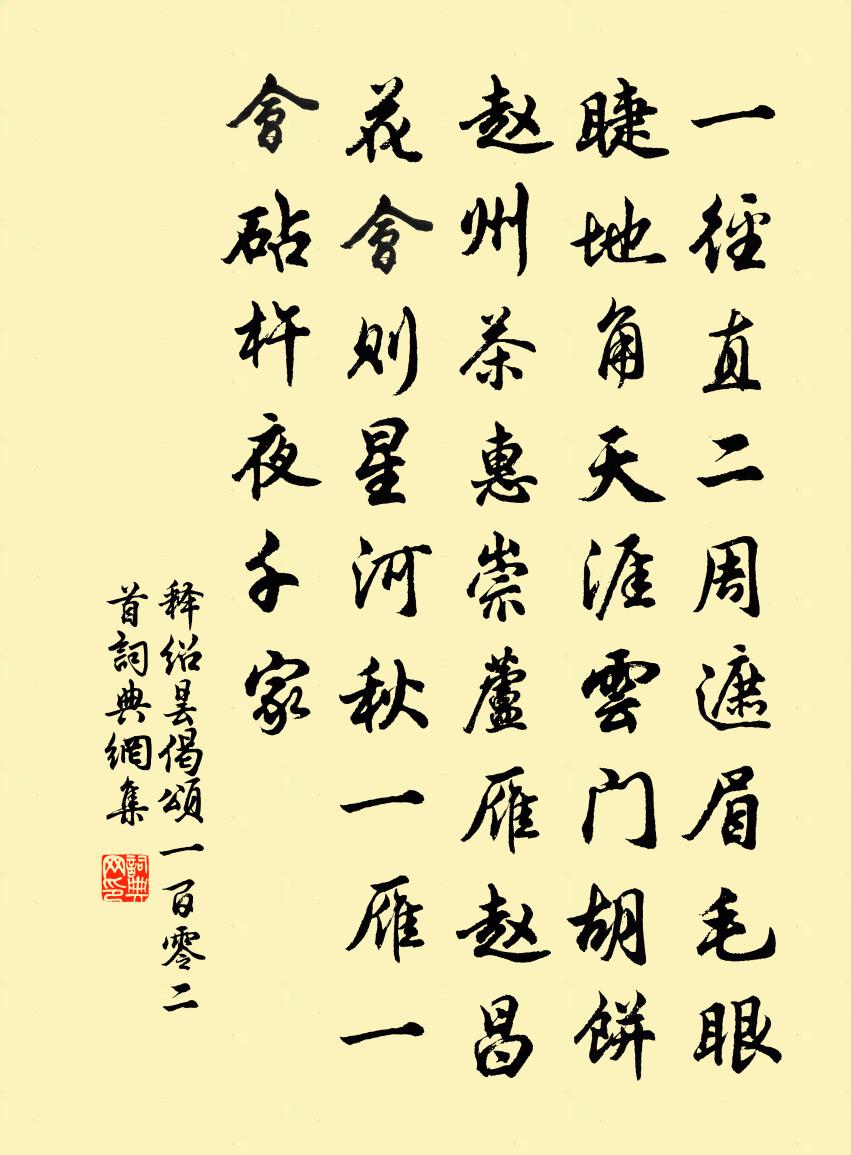 一徑直二周遮眉毛眼
睫地角天涯雲门胡餅
赵州茶惠崇蘆雁赵昌
花會則星河秋一雁一
會砧杵夜千家
释绍昙偈頌一百零二
首詞典網集
詞典网印